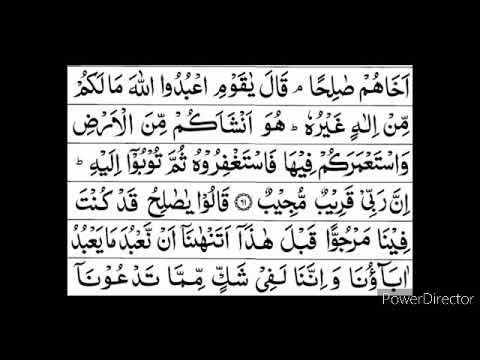 اَخَاهُمْ صٰلِحًا ۘ قَالَ يٰقَوْمِ اعْبُدُوا اللّٰهَ مَا لَكُمْ
مِّنْ اِلٰهٍ غَيْرُهٗ ؕ هُوَ اَنْشَاَكُمْ مِّنَ الْاَرْضِ
وَاسْتَعْمَرَكُمْ فِيْهَا فَاسْتَغْفِرُوْهُ ثُمَّ تُوْبُوْۤا اِلَيْهِ ؕ
اِنَّ رَبِّيْ قَرِيْبٌ مُّجِيْبٌ ۝۶۱ قَالُوْا يٰصٰلِحُ قَدْ كُنْتَ
فِيْنَا مَرْجُوًّا قَبْلَ هٰذَاۤ اَتَنْهٰىنَاۤ اَنْ نَّعْبُدَ مَا يَعْبُدُ
اٰبَآؤُنَا وَاِنَّنَا لَفِيْ شَكٍّ مِّمَّا تَدْعُوْنَاۤ
PowerDirector